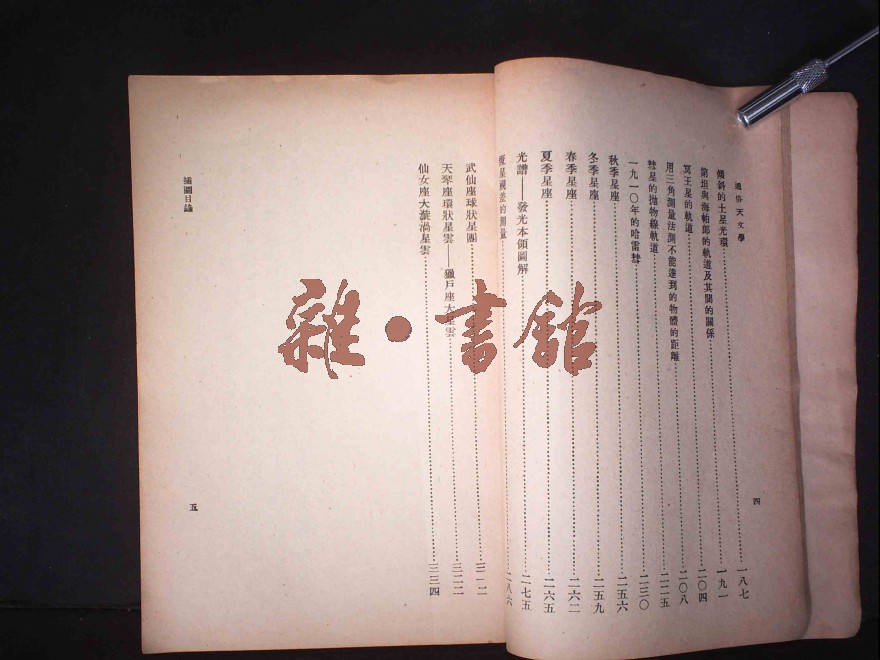 通俗天文學
傾斜的土星光環⋯⋯一八七
第坦與海帕郎的軌道及其間的關係⋯⋯一九一
冥王星的軌道⋯⋯二〇四
用三角測量法測不能達到的物體的距離⋯⋯二〇八
彗星的拋物線軌道⋯⋯二二五
一九一〇年的哈雷彗⋯⋯二三〇
秋季星座⋯⋯二五六
冬季星座⋯⋯二五九
春季星座⋯⋯二六二
夏季星座⋯⋯二六五
光譜——發光本領圖解⋯⋯二七五
恆星視差的測量⋯⋯二八六
四
武仙座球狀星團⋯⋯三一二
天琴座環狀星雲——獵戶座大星雲⋯⋯三二二
仙女座大漩渦星雲⋯⋯三三四
插圖目錄
五
雜•書館